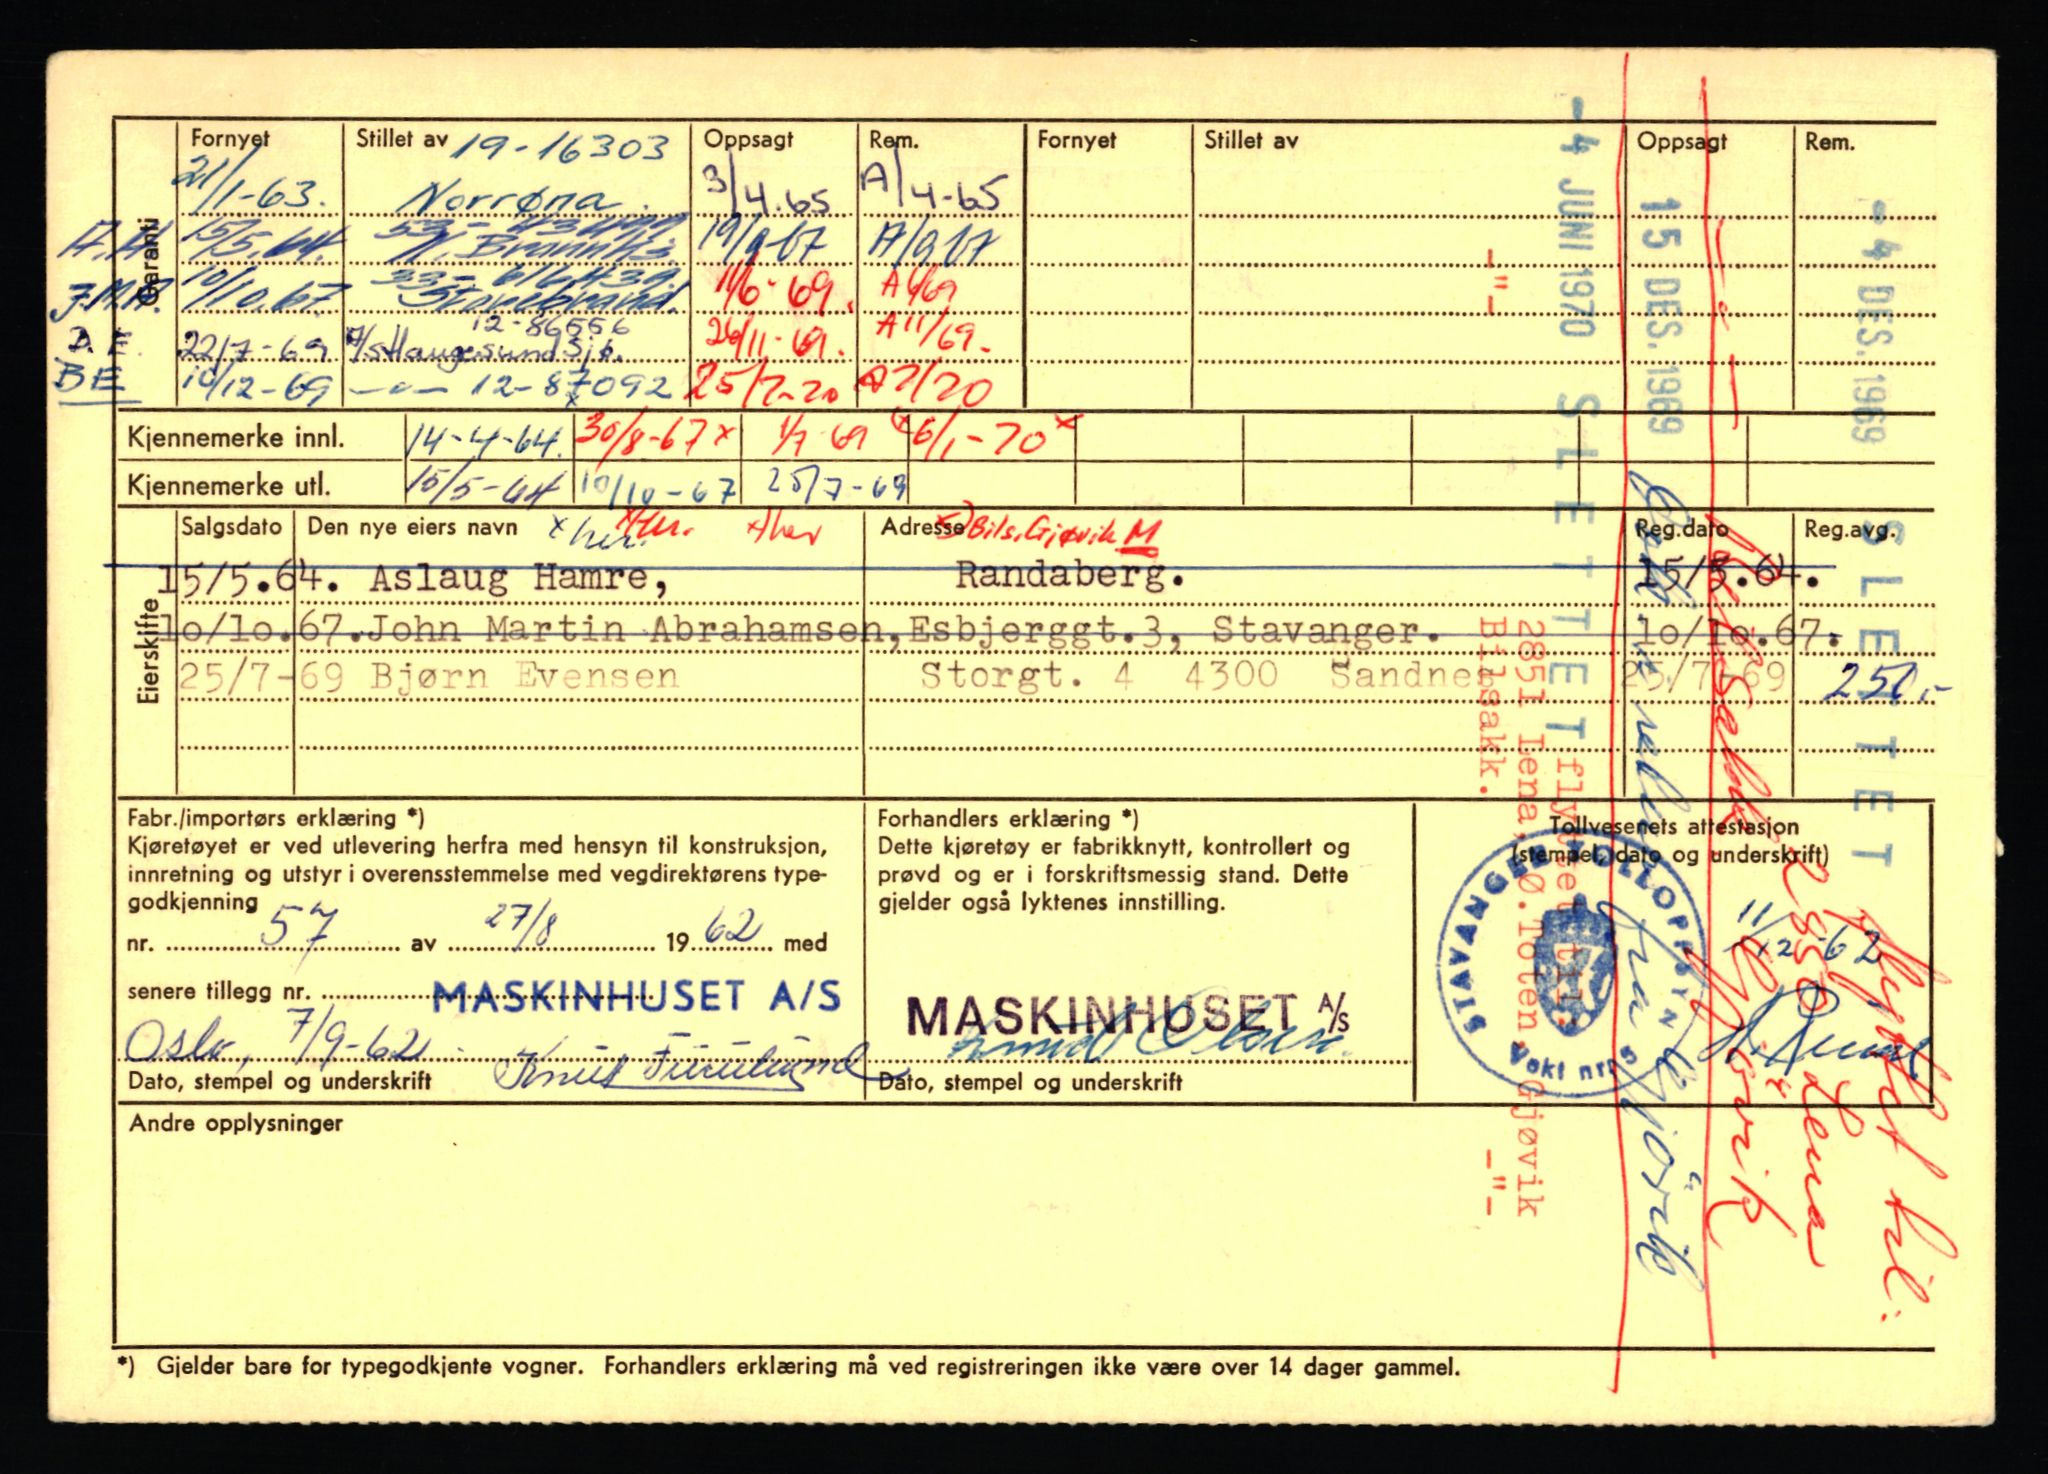 Garanti
Fornyet Stillet av 19-16303 Oppsagt Rem. Fornyet Stillet av Oppsagt Rem.
21/1-63. Norrøna. 3/4.65 A/4-65
A.H. 15/5.64. 19/9.67 A/9.67
10/10.67. 33-616439. Storebrand. 11/6-69. A6/69
12-86556
D.E. 22/7-69 A/S Haugesund Sjø. 26/11-69. A11/69.
BE 10/12-69 -"- 12-87092 25/2-70 A2/70
Kjennemerke innl. 14-4-64. 30/8-67 x 1/7-69 x 6/1-70 x
Kjennemerke utl. 15/5-64 10/10-67 25/7-69
Eierskifte
Salgsdato Den nye eiers navn x her. x her. x her Adresse x) Bils. Gjøvik M Reg.dato Reg.avg.
15/5.64. Aslaug Hamre, Randaberg. 15/5.64.
10/10.67. John Martin Abrahamsen, Esbjerggt.3, Stavanger. 10/10.67.
25/7-69 Bjørn Evensen Storgt. 4 4300 Sandnes 25/7-69 250,-
Fabr./importørs erklæring *)
Kjøretøyet er ved utlevering herfra med hensyn til konstruksjon,
innretning og utstyr i overensstemmelse med vegdirektørens type-
godkjenning
nr. 57 av 27/8 1962 med
senere tillegg nr. MASKINHUSET A/S
Oslo, 7/9-62 Knut
Dato, stempel og underskrift
Forhandlers erklæring *)
Dette kjøretøy er fabrikknytt, kontrollert og
prøvd og er i forskriftsmessig stand. Dette
gjelder også lyktenes innstilling.
MASKINHUSET A/S
Dato, stempel og underskrift
Tollvesenets attestasjon
(stempel, dato og underskrift)
STAVANGER TOLLOPPSYN
Vekt nr. 5
11/12-62
Andre opplysninger
*) Gjelder bare for typegodkjente vogner. Forhandlers erklæring må ved registreringen ikke være over 14 dager gammel.
-4 JUNI 1970 SLETTET
15 DES. 1969
-4 DES. 1969 SLETTET
flyttet til:
2851 Lena, Ø.Toten. Gjøvik
-"- Bilsakk. -"-
fra Gjøvik
flyttet til:
2850 Lena
Gjøvik